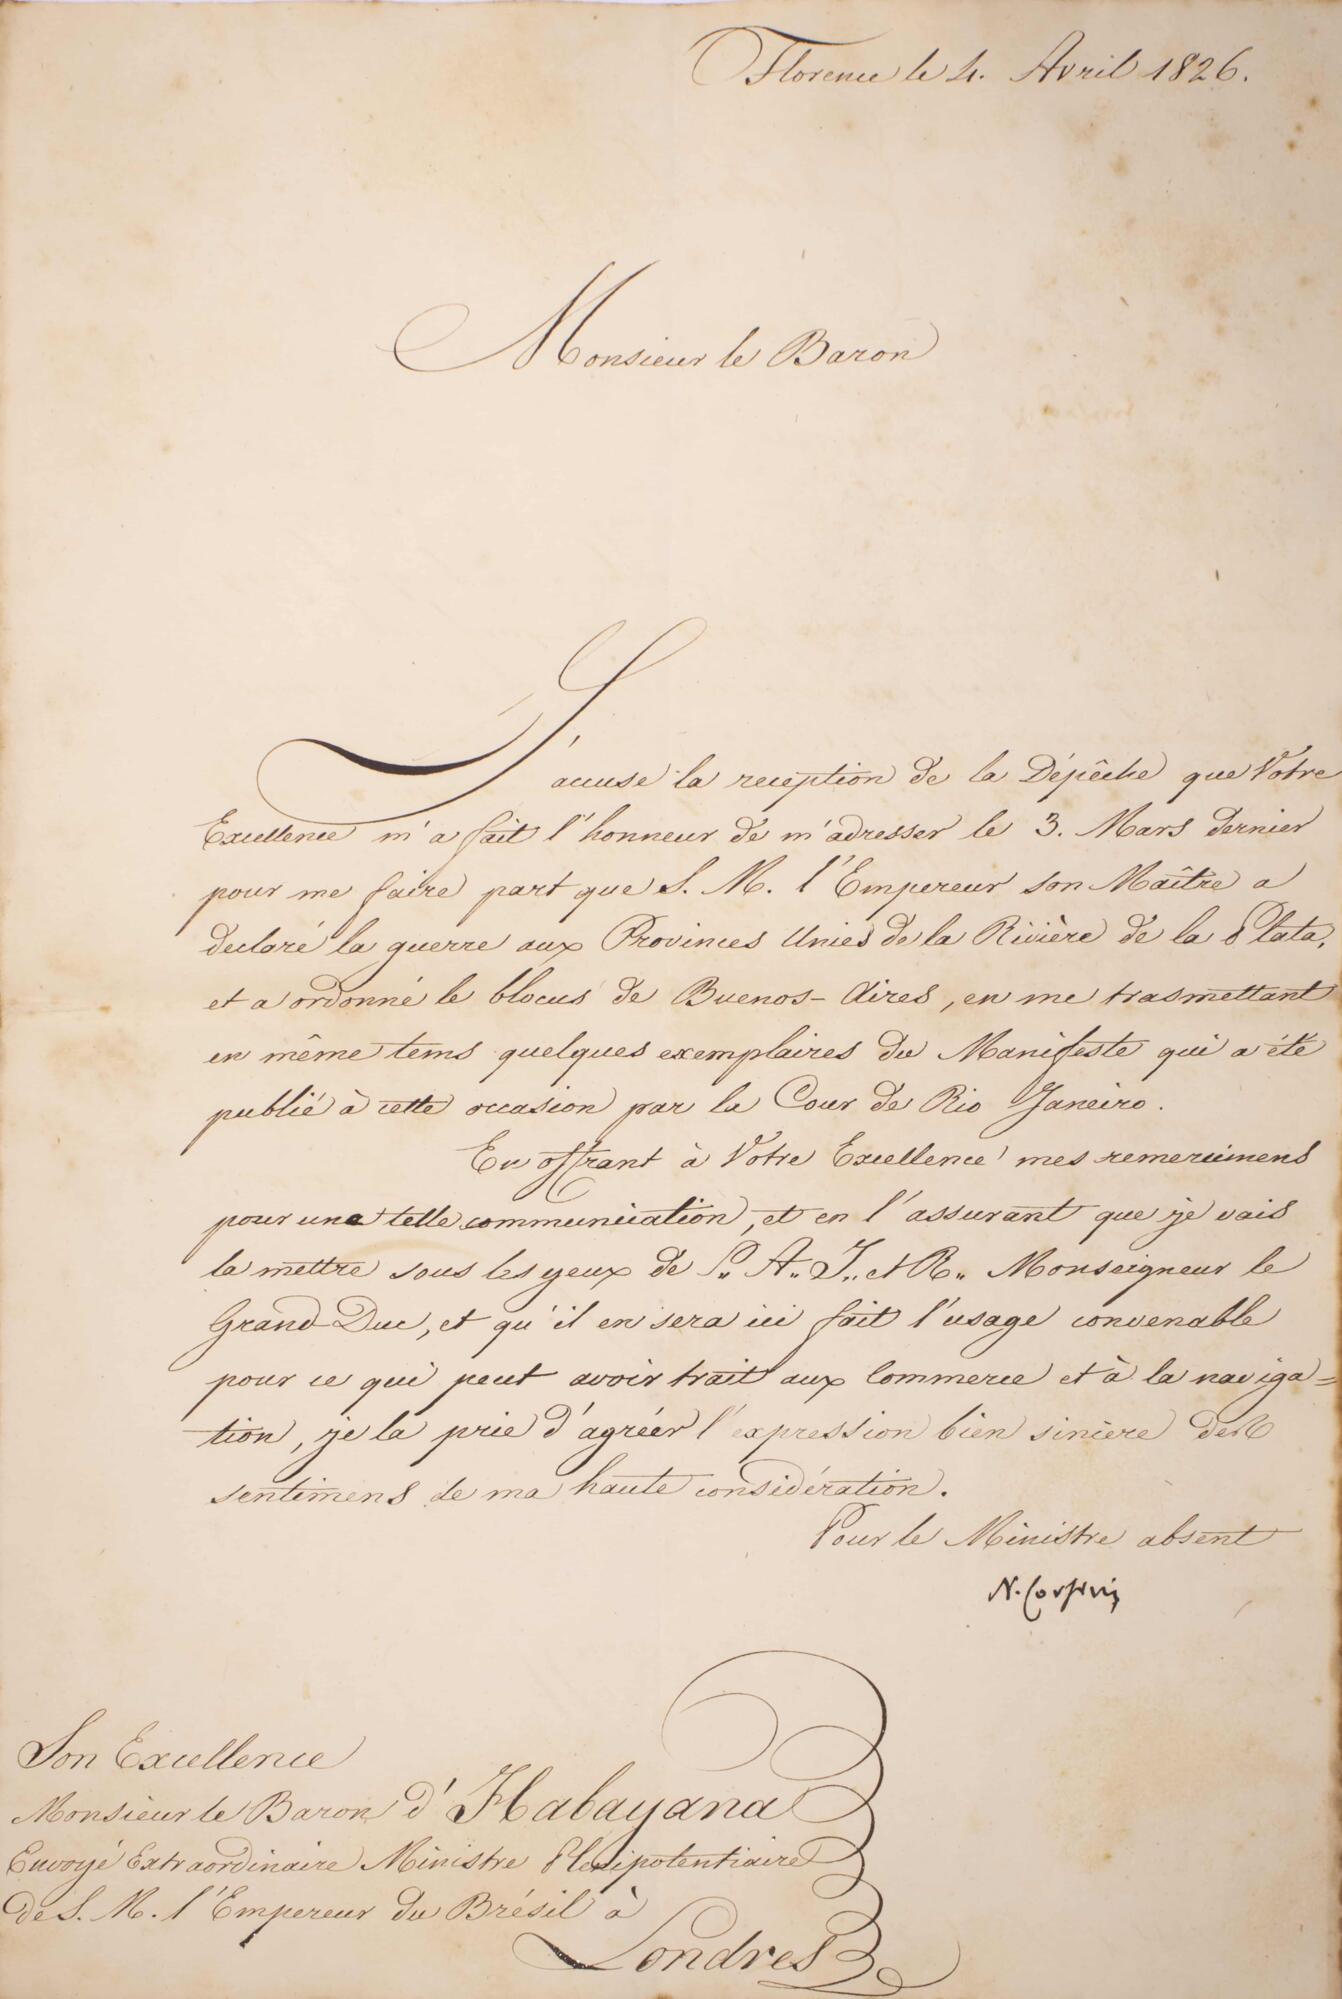 Florence le 4. Avril 1826.
Monsieur le Baron
J'accuse la reception de la Dépêche que Votre
Excellence m'a fait l'honneur de m'adresser le 3. Mars dernier
pour me faire part que S. M. l'Empereur son Maître a
declaré la guerre aux Provinces Unies de la Rivière de la Plata,
et a ordonné le blocus de Buenos-Aires, en me trasmettant
en même tems quelques exemplaires du Manifeste qui a été
publié à cette occasion par la Cour de Rio Janeiro.
En offrant à Votre Excellence mes remercimens
pour une telle communication, et en l'assurant que je vais
la mettre sous les yeux de S,, A,, I,, et R,, Monseigneur le
Grand Duc, et qu'il en sera ici fait l'usage convenable
pour ce qui peut avoir trait aux Commerce et à la naviga=
tion, je la prie d'agréér l'expression bien sincere des
sentimens de ma haute considération.
Pour le Ministre absent
N. Corsini
Son Excellence
Monsieur le Baron d'Habayana
Envoyé Extraordinaire Ministre Plenipotentiaire
de S. M. l'Empereur du Brésil à
Londres